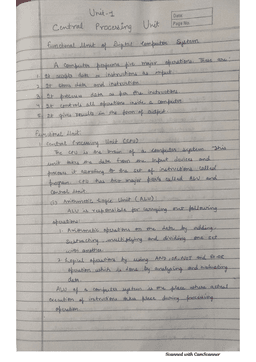 Unit-1
Date
Page No.
Central Processing Unit
Functional Unit of Digital Computer System
A computer performs five major operations. These are
1. It accepts data or instructions as input
2. It stores data and instruction
3. It process data as per the instructions
4. It controls all operations inside a computer
5. It gives results in the form of output
Functional Unit:
1. Central Processing Unit (CPU)
The CPU is the brain of a computer system. This
unit takes the data from the input devices and
process it according to the set of instructions called
program. CPU has two major parts called ALU and
Control Unit
(i) Arithmetic Logic Unit (ALU):
ALU is responsible for carrying out following
operations:
> Arithmetic operations on the data by adding,
subtracting, multiplying and dividing one set
with another
> Logical operations by using AND, OR, NOT and
operation which is done by analyzing and evaluating
data.
ALU of a computer system is the place where actual
execution of instructions takes place during processing
operation
Scanned with CamScanner